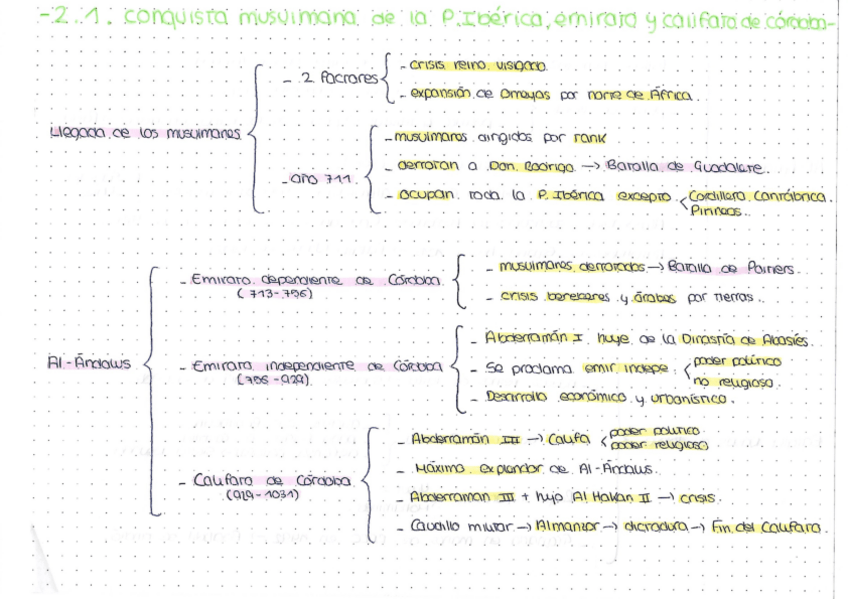 -2.1. Conquista musulmana de la P. Ibérica, emirato y califato de córdoba-
- 2 Factores
- crisis reino visigodo.
- expansión de Omeyas por norte de África.
Llegada de los musulmanes
- año 711
- musulmanes dirigidos por Tarik
- derrotan a Don Rodrigo → Batalla de Guadalete.
- ocupan toda la P. Ibérica excepto
Cordillera Cantábrica.
Pirineos.
Al-Ándalus
- Emirato dependiente de Córdoba
(713-756)
- musulmanes derrotados → Batalla de Poitiers.
- crisis bereberes y árabes por tierras.
- Emirato independiente de Córdoba
(756-929)
- Abderramán I huye de la Dinastía de Abasíes.
- Se proclama emir indepe.
poder político
no religioso.
- Desarrollo económico y urbanístico.
- Califato de Córdoba
(929-1031)
- Abderramán III → Califa
poder político
poder religioso
- Máximo explendor de Al-Ándalus.
- Abderraman III + hijo Al Hakan II → crisis.
- Caudillo militar → Almanzor → dictadura → Fin del Califato.